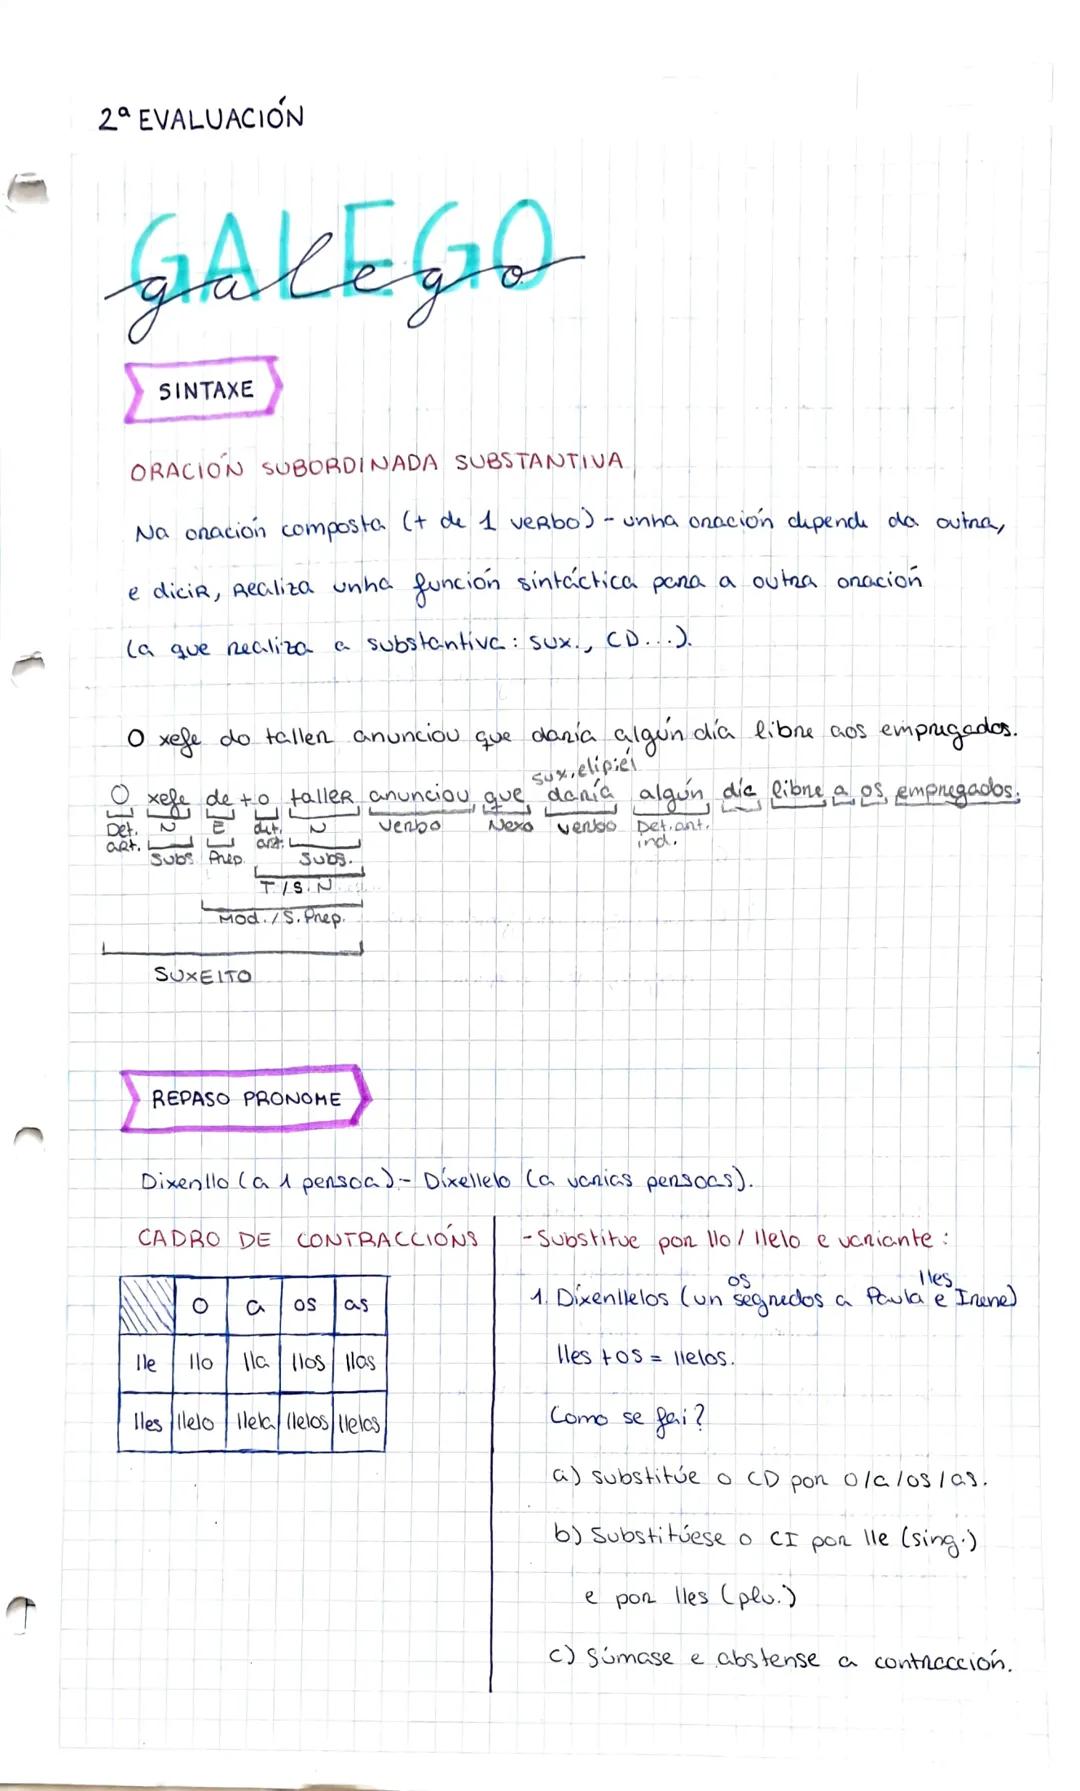 2ª EVALUACIÓN
GALEGO
galego
SINTAXE
ORACIÓN SUBORDINADA SUBSTANTIVA
Na oración composta (+ de 1 verbo) - unha oración depende da outra,
e dicir, realiza unha función sintáctica para a outra oración
(a que realiza a substantiva: sux., CD...).
O xefe do taller anunciou que daría algún día libre aos empregados.
sux. elip: el
O xefe de + o taller anunciou que daría algún día libre a os empregados.
Det. N E det. N verbo Nexo verbo Det. ant.
art. art. ind.
Subs Prep Subs.
T / S. N
Mod. / S. Prep.
SUXEITO
REPASO PRONOME
Dixenllo (a 1 persoa) - Díxellelo (a varias persoas).
CADRO DE CONTRACCIÓNS
o a os as
lle llo lla llos llas
lles llelo llela llelos llelas
- Substitue por llo / llelo e variante:
os lles
1. Dixenllelos (un segredos a Paula e Irene)
lles + os = llelos.
Como se fai?
a) substitúe o CD por o/a/os/as.
b) Substitúese o CI por lle (sing.)
e por lles (plu.)
c) Súmase e abstense a contracción.